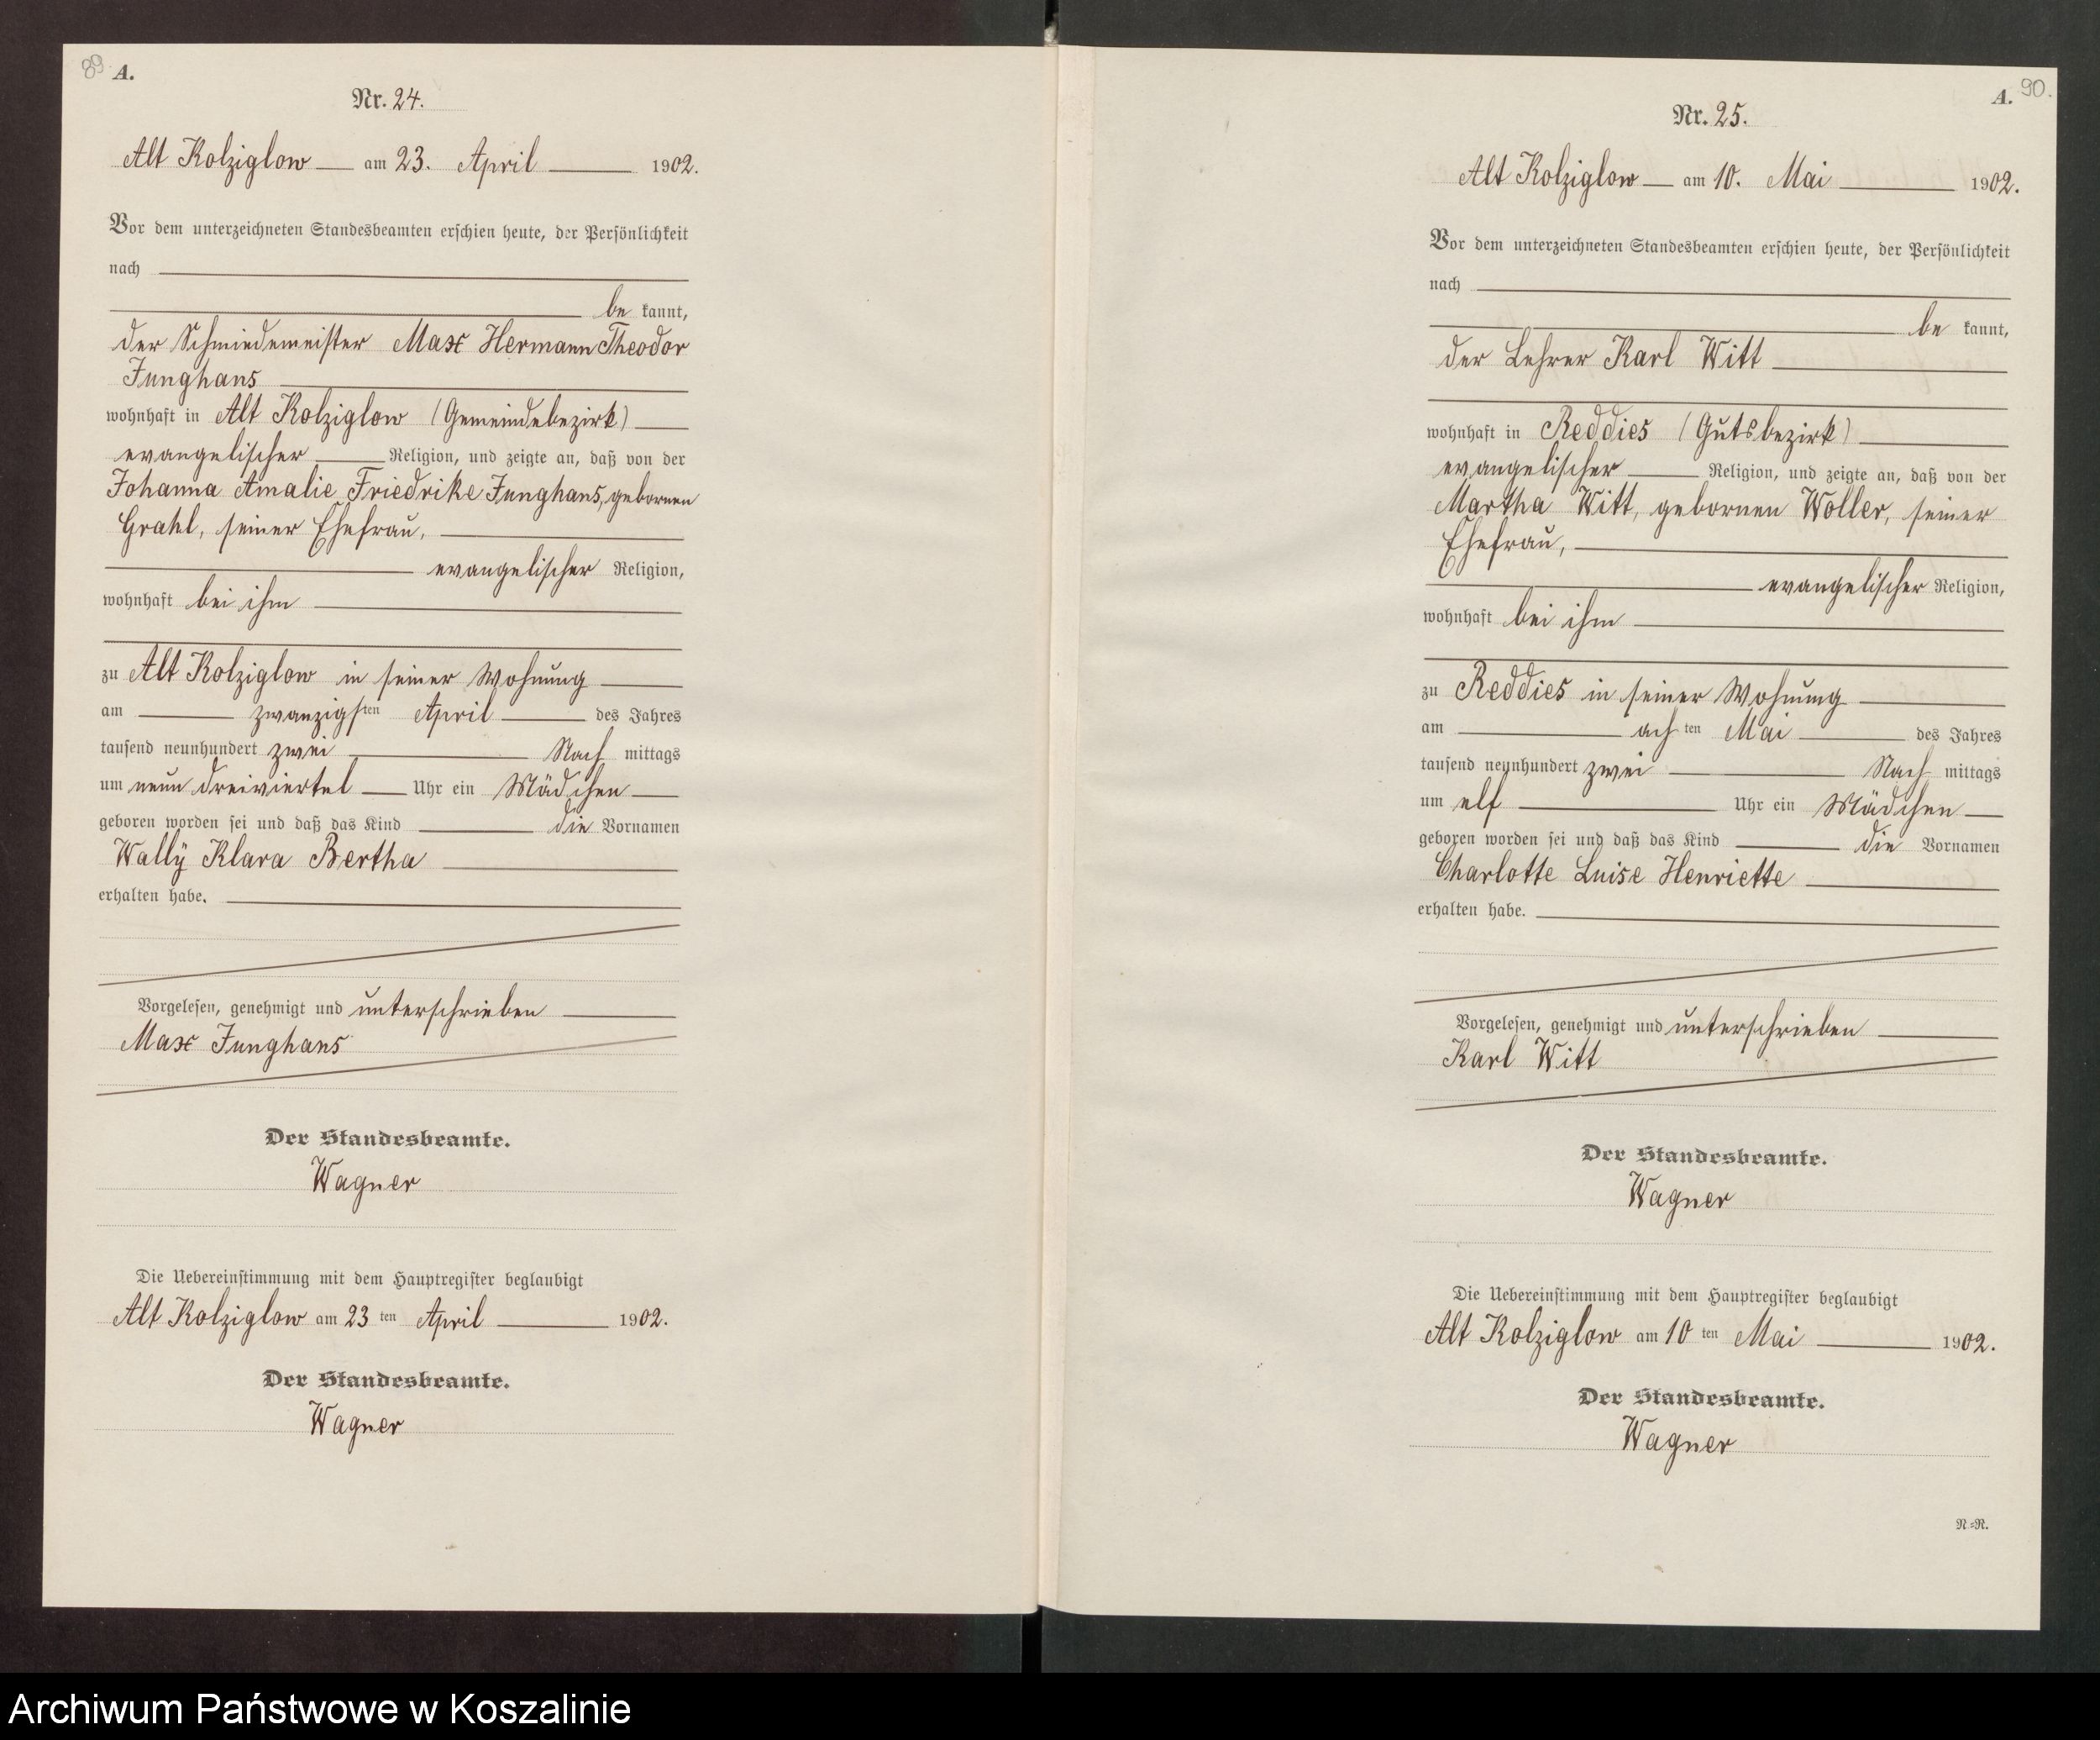 89 A.
Nr. 24.
Alt Kolziglow am 23. April 1902.
Vor dem unterzeichneten Standesbeamten erschien heute, der Persönlichkeit
nach
be kannt,
der Schmiedemeister Max Hermann Theodor
Junghans
wohnhaft in Alt Kolziglow (Gemeindebezirk)
evangelischer Religion, und zeigte an, daß von der
Johanna Amalie Friedrike Junghans, gebornen
Grahl, seiner Ehefrau,
evangelischer Religion,
wohnhaft bei ihm
zu Alt Kolziglow in seiner Wohnung
am zwanzigsten April des Jahres
tausend neunhundert zwei Nach mittags
um neun dreiviertel Uhr ein Mädchen
geboren worden sei und daß das Kind die Vornamen
Wally Klara Bertha
erhalten habe.
Vorgelesen, genehmigt und unterschrieben
Max Junghans
Der Standesbeamte.
Wagner
Die Uebereinstimmung mit dem Hauptregister beglaubigt
Alt Kolziglow am 23 ten April 1902.
Der Standesbeamte.
Wagner
A. 90.
Nr. 25.
Alt Kolziglow am 10. Mai 1902.
Vor dem unterzeichneten Standesbeamten erschien heute, der Persönlichkeit
nach
be kannt,
der Lehrer Karl Witt
wohnhaft in Reddies (Gutsbezirk)
evangelischer Religion, und zeigte an, daß von der
Martha Witt, gebornen Woller, seiner
Ehefrau,
evangelischer Religion,
wohnhaft bei ihm
zu Reddies in seiner Wohnung
am ach ten Mai des Jahres
tausend neunhundert zwei Nach mittags
um elf Uhr ein Mädchen
geboren worden sei und daß das Kind die Vornamen
Charlotte Luise Henriette
erhalten habe.
Vorgelesen, genehmigt und unterschrieben
Karl Witt
Der Standesbeamte.
Wagner
Die Uebereinstimmung mit dem Hauptregister beglaubigt
Alt Kolziglow am 10 ten Mai 1902.
Der Standesbeamte.
Wagner
N.=R.
Archiwum Państwowe w Koszalinie